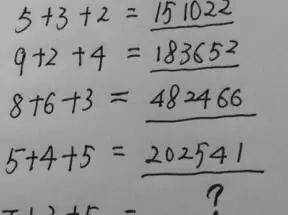 5+3+2 = 151022
9+2+4 = 183652
8+6+3 = 482466
5+4+5 = 202541
?